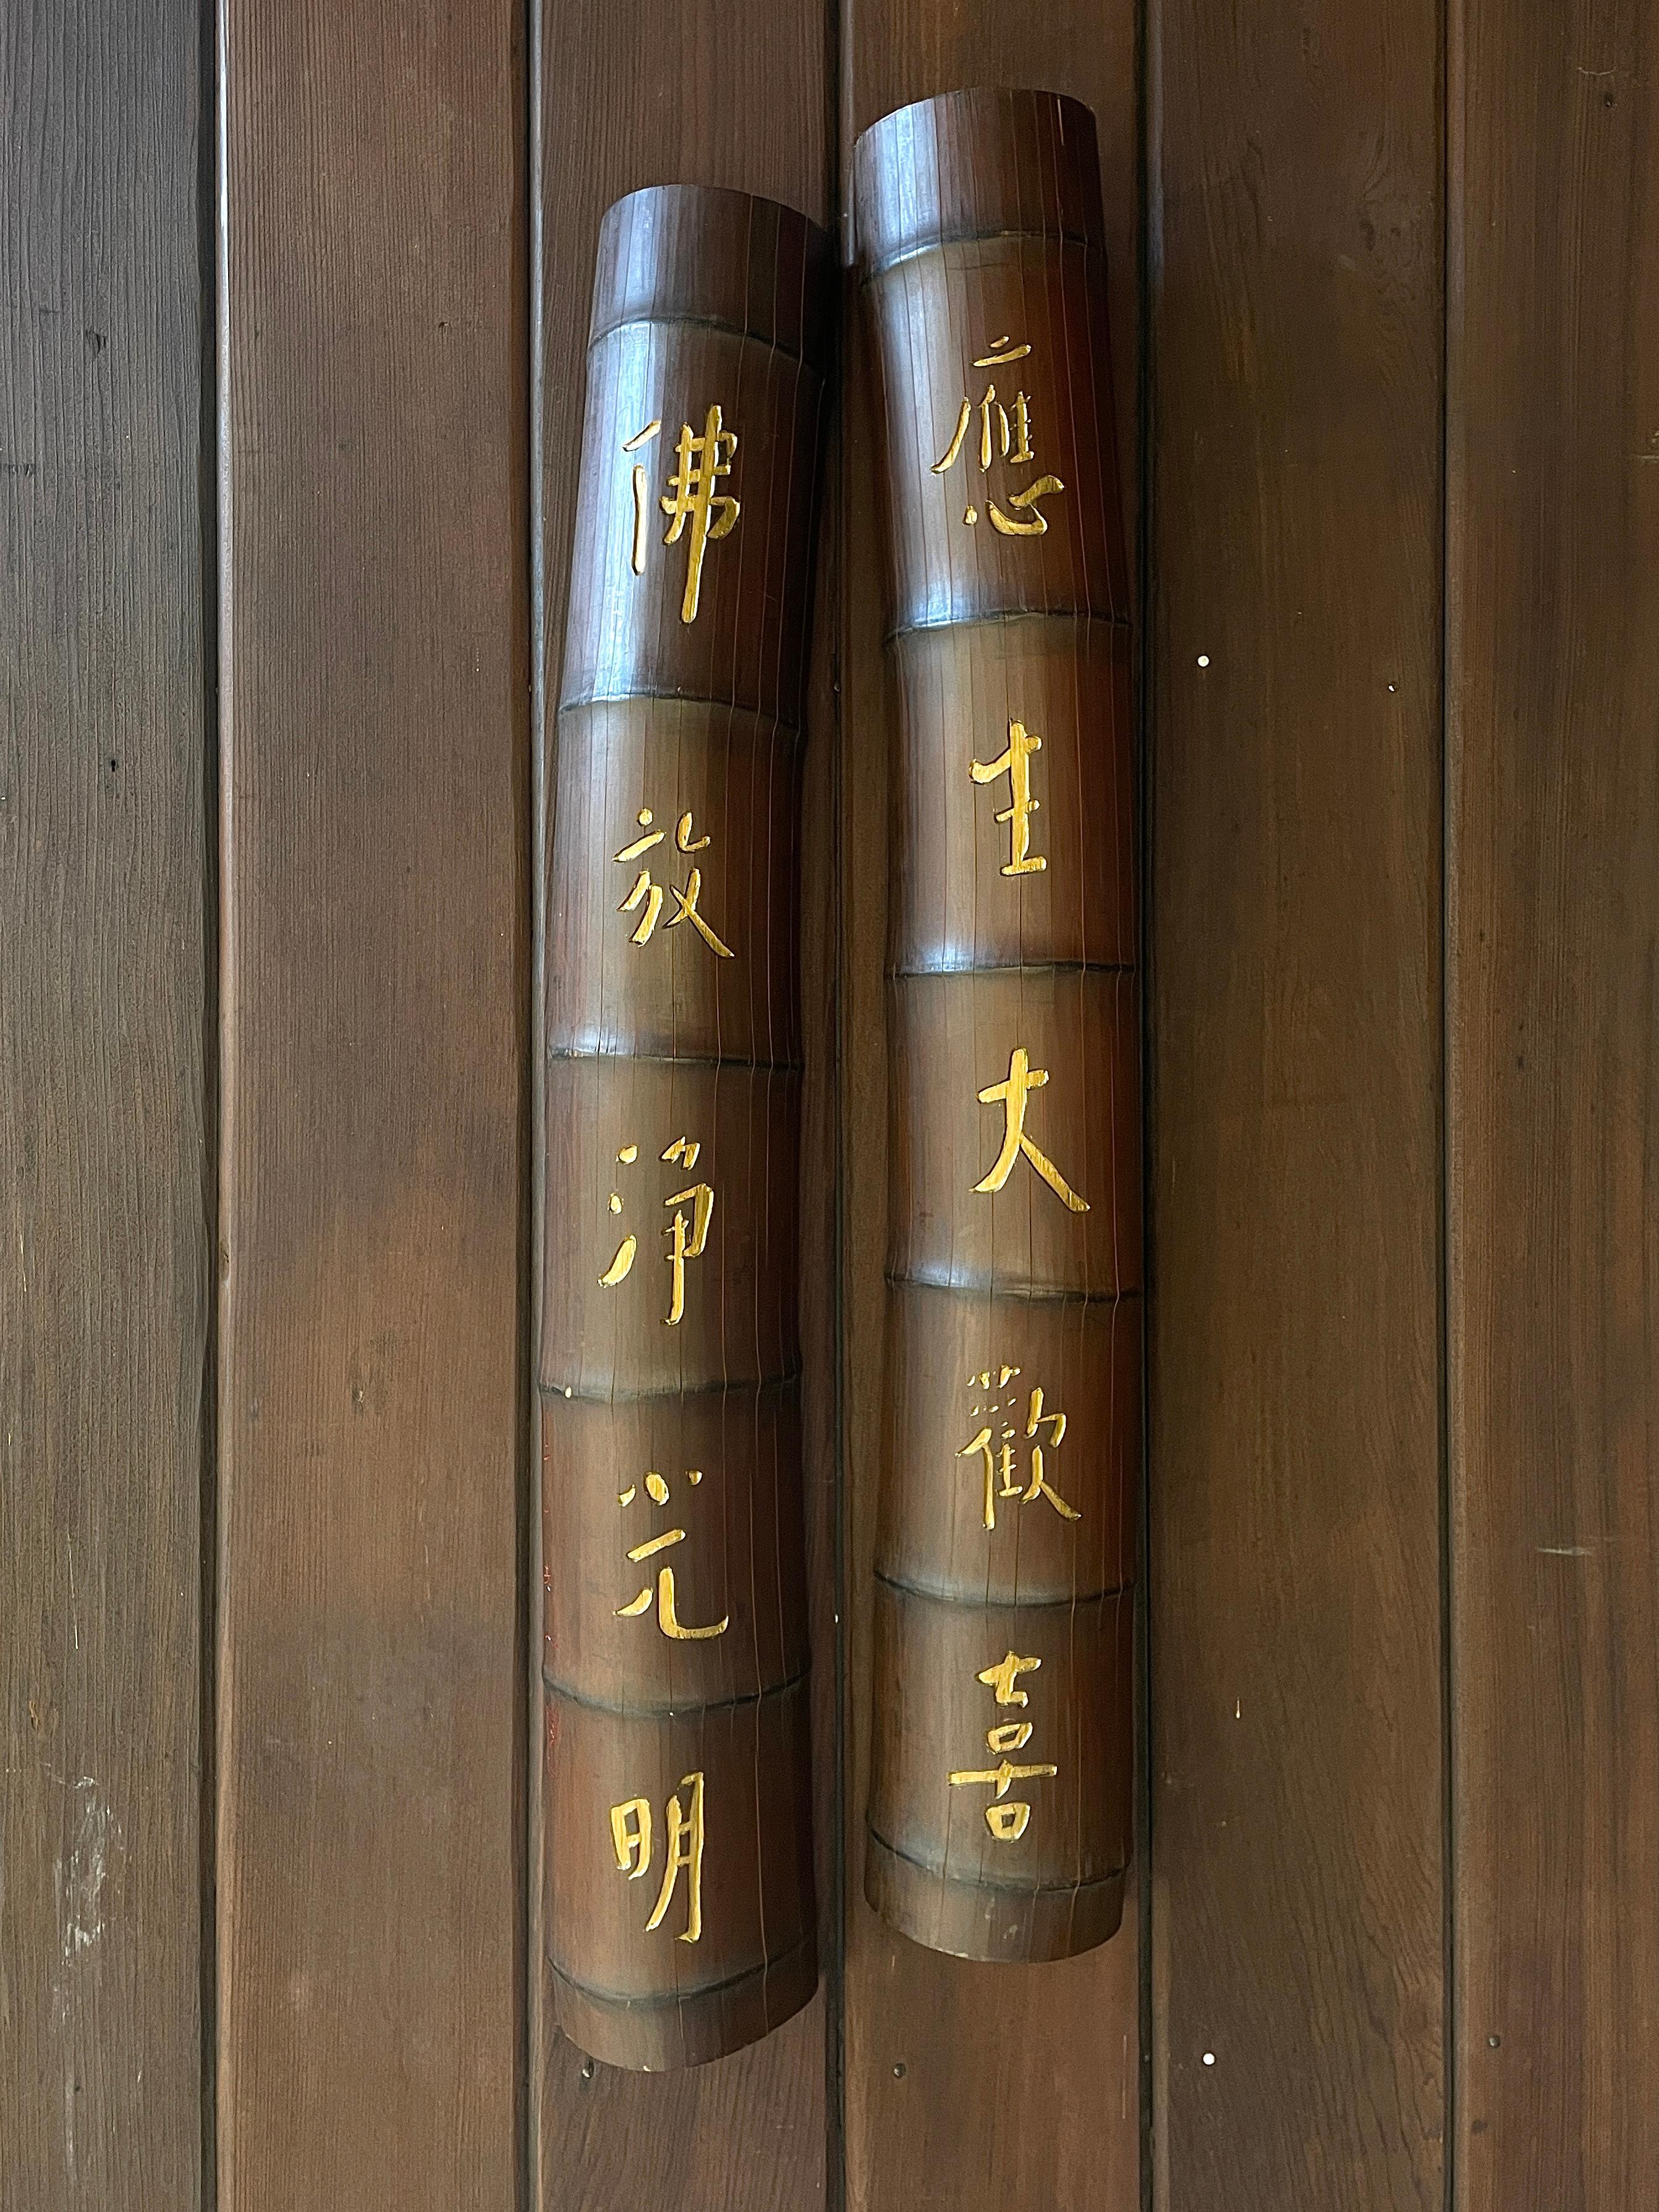 應生大歡喜
佛放淨光明